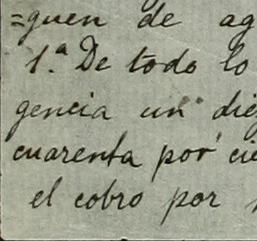 =guen de ag
1.ª De todo lo
gencia un die
cuarenta por cie
el cobro por